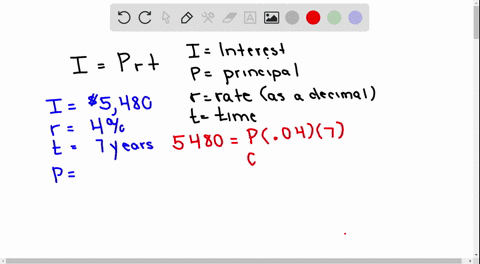 I = Prt
I = Interest
P = principal
r = rate (as a decimal)
t = time
I = $5,480
r = 4%
t = 7 years
P =
5480 = P(.04)(7)
C